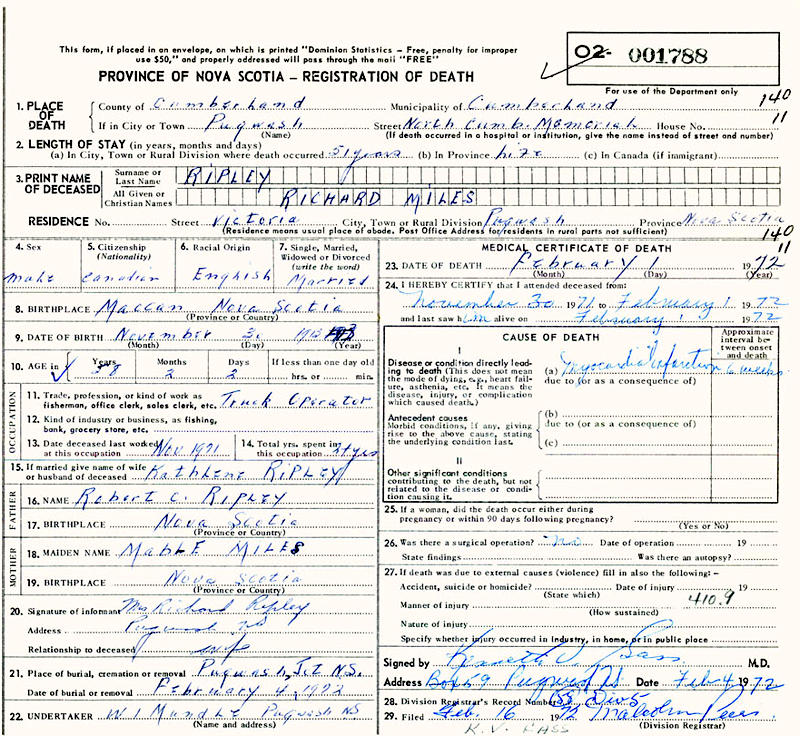 This form, if placed in an envelope, on which is printed "Dominion Statistics – Free, penalty for improper
use $50," and properly addressed will pass through the mail "FREE"
O2- 001788
PROVINCE OF NOVA SCOTIA – REGISTRATION OF DEATH
For use of the Department only
140
11
1. PLACE OF DEATH County of Cumberland Municipality of Cumberland
If in City or Town Pugwash Street North Cumb. Memorial House No.
(Name) (If death occurred in a hospital or institution, give the name instead of street and number)
2. LENGTH OF STAY (in years, months and days)
(a) In City, Town or Rural Division where death occurred 51 years (b) In Province life (c) In Canada (if immigrant)
3. PRINT NAME OF DECEASED Surname or Last Name RIPLEY
All Given or Christian Names RICHARD MILES
RESIDENCE No. Street Victoria City, Town or Rural Division Pugwash Province Nova Scotia
(Residence means usual place of abode. Post Office Address for residents in rural parts not sufficient)
140
11
4. Sex male
5. Citizenship (Nationality) Canadian
6. Racial Origin English
7. Single, Married, Widowed or Divorced (write the word) Married
8. BIRTHPLACE Maccan Nova Scotia
(Province or Country)
9. DATE OF BIRTH November 30 1913
(Month) (Day) (Year)
10. AGE Years 58 Months 2 Days 2 If less than one day old hrs. or min.
OCCUPATION
11. Trade, profession, or kind of work as fisherman, office clerk, sales clerk, etc. Truck Operator
12. Kind of industry or business, as fishing, bank, grocery store, etc.
13. Date deceased last worked at this occupation Nov 1971
14. Total yrs. spent in this occupation yrs
15. If married give name of wife or husband of deceased Kathlene RIPLEY
FATHER
16. NAME Robert C. RIPLEY
17. BIRTHPLACE Nova Scotia
(Province or Country)
MOTHER
18. MAIDEN NAME MABLE MILES
19. BIRTHPLACE Nova Scotia
(Province or Country)
20. Signature of informant Mrs Richard Ripley
Address Pugwash NS
Relationship to deceased wife
21. Place of burial, cremation or removal Pugwash Jct NS.
Date of burial or removal February 4, 1972
22. UNDERTAKER W I Mundle Pugwash NS
(Name and address)
MEDICAL CERTIFICATE OF DEATH
23. DATE OF DEATH February 1 1972
(Month) (Day) (Year)
24. I HEREBY CERTIFY that I attended deceased from:
November 30 1971 to February 1 1972
and last saw him alive on February 1 1972
CAUSE OF DEATH
Approximate interval between onset and death
I
Disease or condition directly leading to death (This does not mean the mode of dying, e.g., heart failure, asthenia, etc. It means the disease, injury, or complication which caused death.)
(a) Myocardial Infarction 6 weeks
due to (or as a consequence of)
Antecedent causes
Morbid conditions, if any, giving rise to the above cause, stating the underlying condition last.
(b)
due to (or as a consequence of)
(c)
II
Other significant conditions
contributing to the death, but not related to the disease or condition causing it.
25. If a woman, did the death occur either during pregnancy or within 90 days following pregnancy?
(Yes or No)
26. Was there a surgical operation? no Date of operation 19
State findings Was there an autopsy?
27. If death was due to external causes (violence) fill in also the following: –
Accident, suicide or homicide? Date of injury 19
(State which)
Manner of injury 410.9
(How sustained)
Nature of injury
Specify whether injury occurred in industry, in home, or in public place
Signed by Kenneth V. Bass M.D.
Address Box 59 Pugwash NS Date Feb 4 1972
28. Division Registrar's Record Number Div 5
29. Filed Feb. 16 1972 Malcolm
(Division Registrar)
K.V. BASS